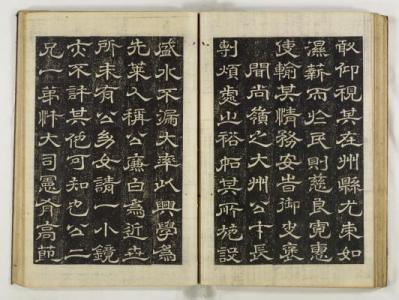 敢仰視其在州縣尤束如
濕薪而於民則慈良寬惠
使輸其情務安皆御史褒
聞尚嶺之大州公才長
剸煩處之裕如其所施設
盛水不漏大率以興學為
先萊人稱公廉白為近世
所未有公幼女請一小鏡
亦不許其他可知也公二
兄一弟忭大司憲有高節